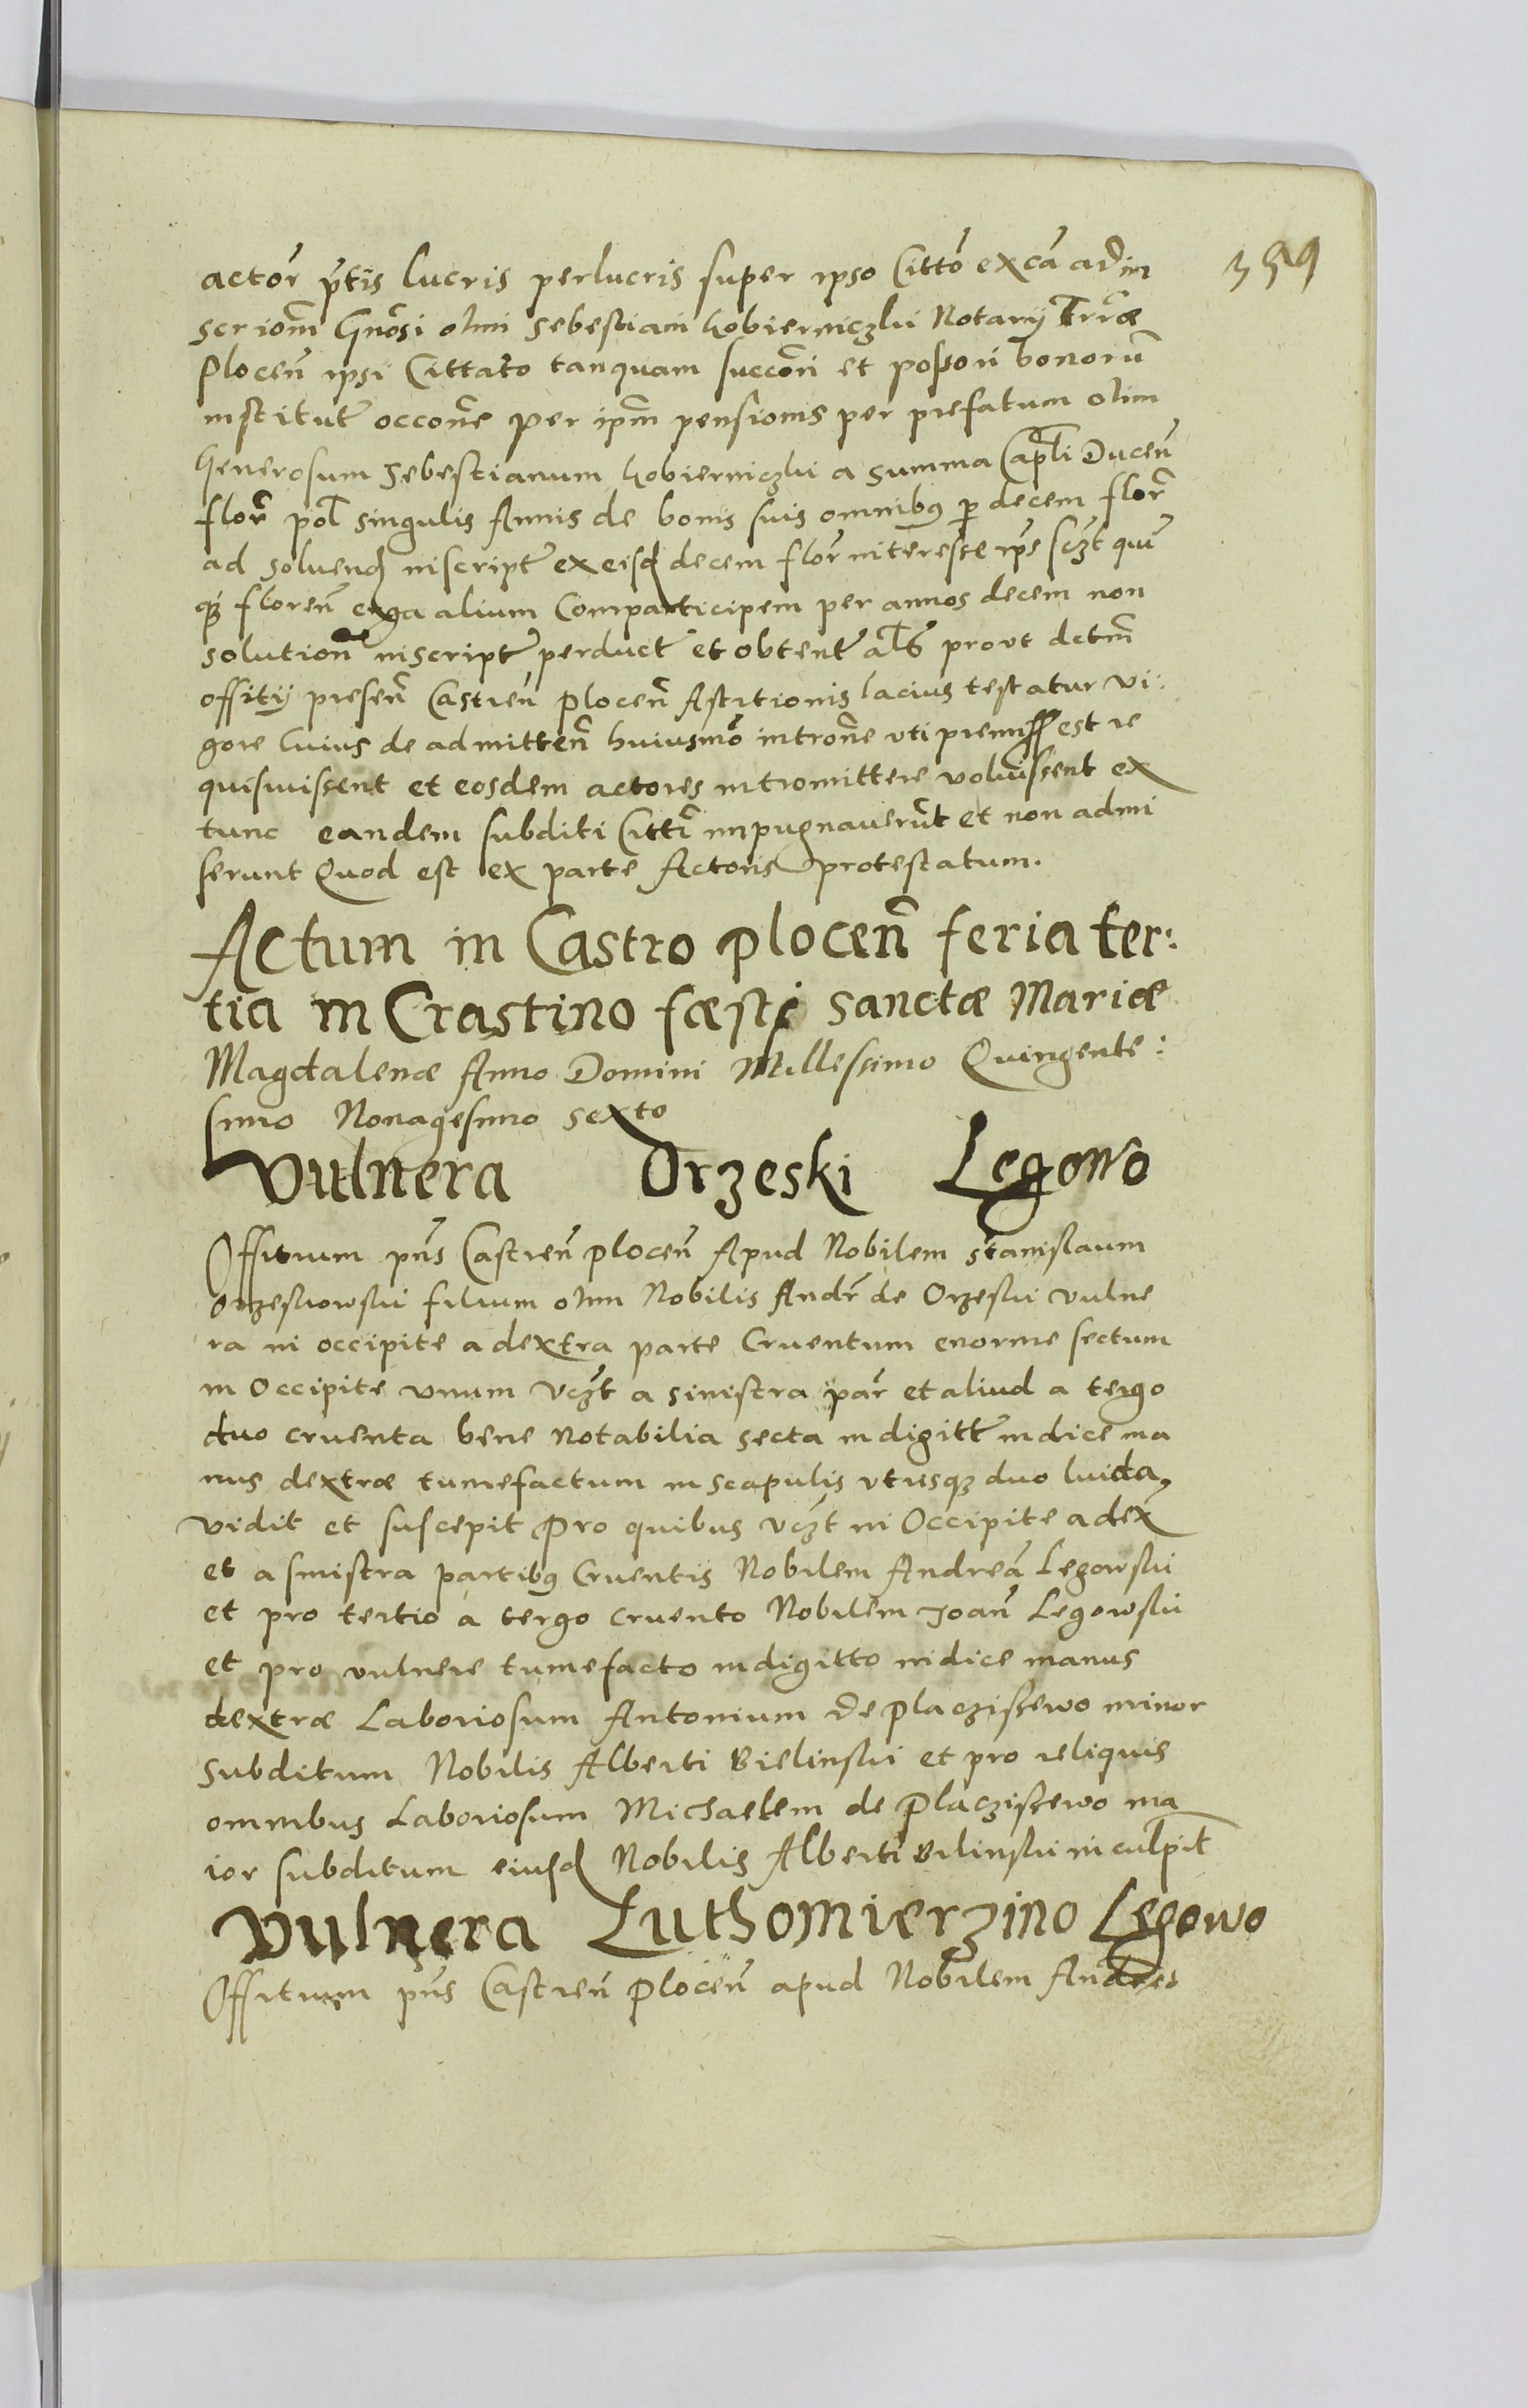 359
actor̃ p̃tis lucris perlucris super ipso Citt̃o exc̃a ad in
scriom̃ Gnõsi olim Sebestiani Kobierniczki Notarij Trr̃æ
Plocen̄ ipsi Cittato tanquam succõri et possori bonorũ
institut̃ occõne per ipm̃ pensionis per prefatum olim
Generosum Sebestianum Kobierniczki a summa Cap̃li Ducen̄
flor̃ pol singulis Annis de bonis suis omnibus p decem flor̃
ad soluend inscript̃ ex eisd decem flor̃ interesse ip̃e sczt quĩ
q florẽn erga alium Comparticipem per annos decem non
solution̄ inscript̃ perduct̃ et obtent̃ als prout dctm̃
offitij presen̄ Castren̄ Plocen̄ Astitionis lacius testatur vi:
gore cuius de admitten̄ huiusmõ introñe uti premiss est re
quisiuissent et eosdem actores intromittere voluissent ex
tunc eandem subditi Citti impugnauerũt et non admi
serunt Quod est ex parte Actoris protestatum.
Actum in Castro plocen̄ feria ter:
tia in Crastino fæsti sanctæ Mariæ
Magdalenæ Anno Domini Millessimo Quingente:
simo Nonagesimo sexto
Vulnera Orzeski Legowo
Offitium pñs Castren̄ plocen̄ Apud Nobilem Stanislaum
Orzeskowski filium olim Nobilis Andr̃ de Orzeski vulne
ra in occipite a dextra parte Cruentum enorme sectum
in Occipite vnum vczt a sinistra par̃ et aliud a tergo
duo cruenta bene notabilia secta in digitt̃ indice ma
nus dextræ tumefactum in scapulis vtrisq duo liuida,
vidit et suscepit Pro quibus vczt in Occipite a dex̃
et a sinistra partibus Cruentis Nobilem Andreã Legowski
et pro tertio a tergo cruento Nobilem Joan̄ Legowski
et pro vulnere tumefacto in digitto indice manus
dextræ Laboriosum Antonium de Placziscewo minor
subditum Nobilis Alberti Bielinski et pro reliquis
omnibus Laboriosum Michaelem de Placziscewo ma
ior subditum eiusd Nobilis Alberti Bilinski inculpit
Vulnera Luthomierzino Legowo
Offitium pñs Castren̄ plocen̄ apud Nobilem Andres